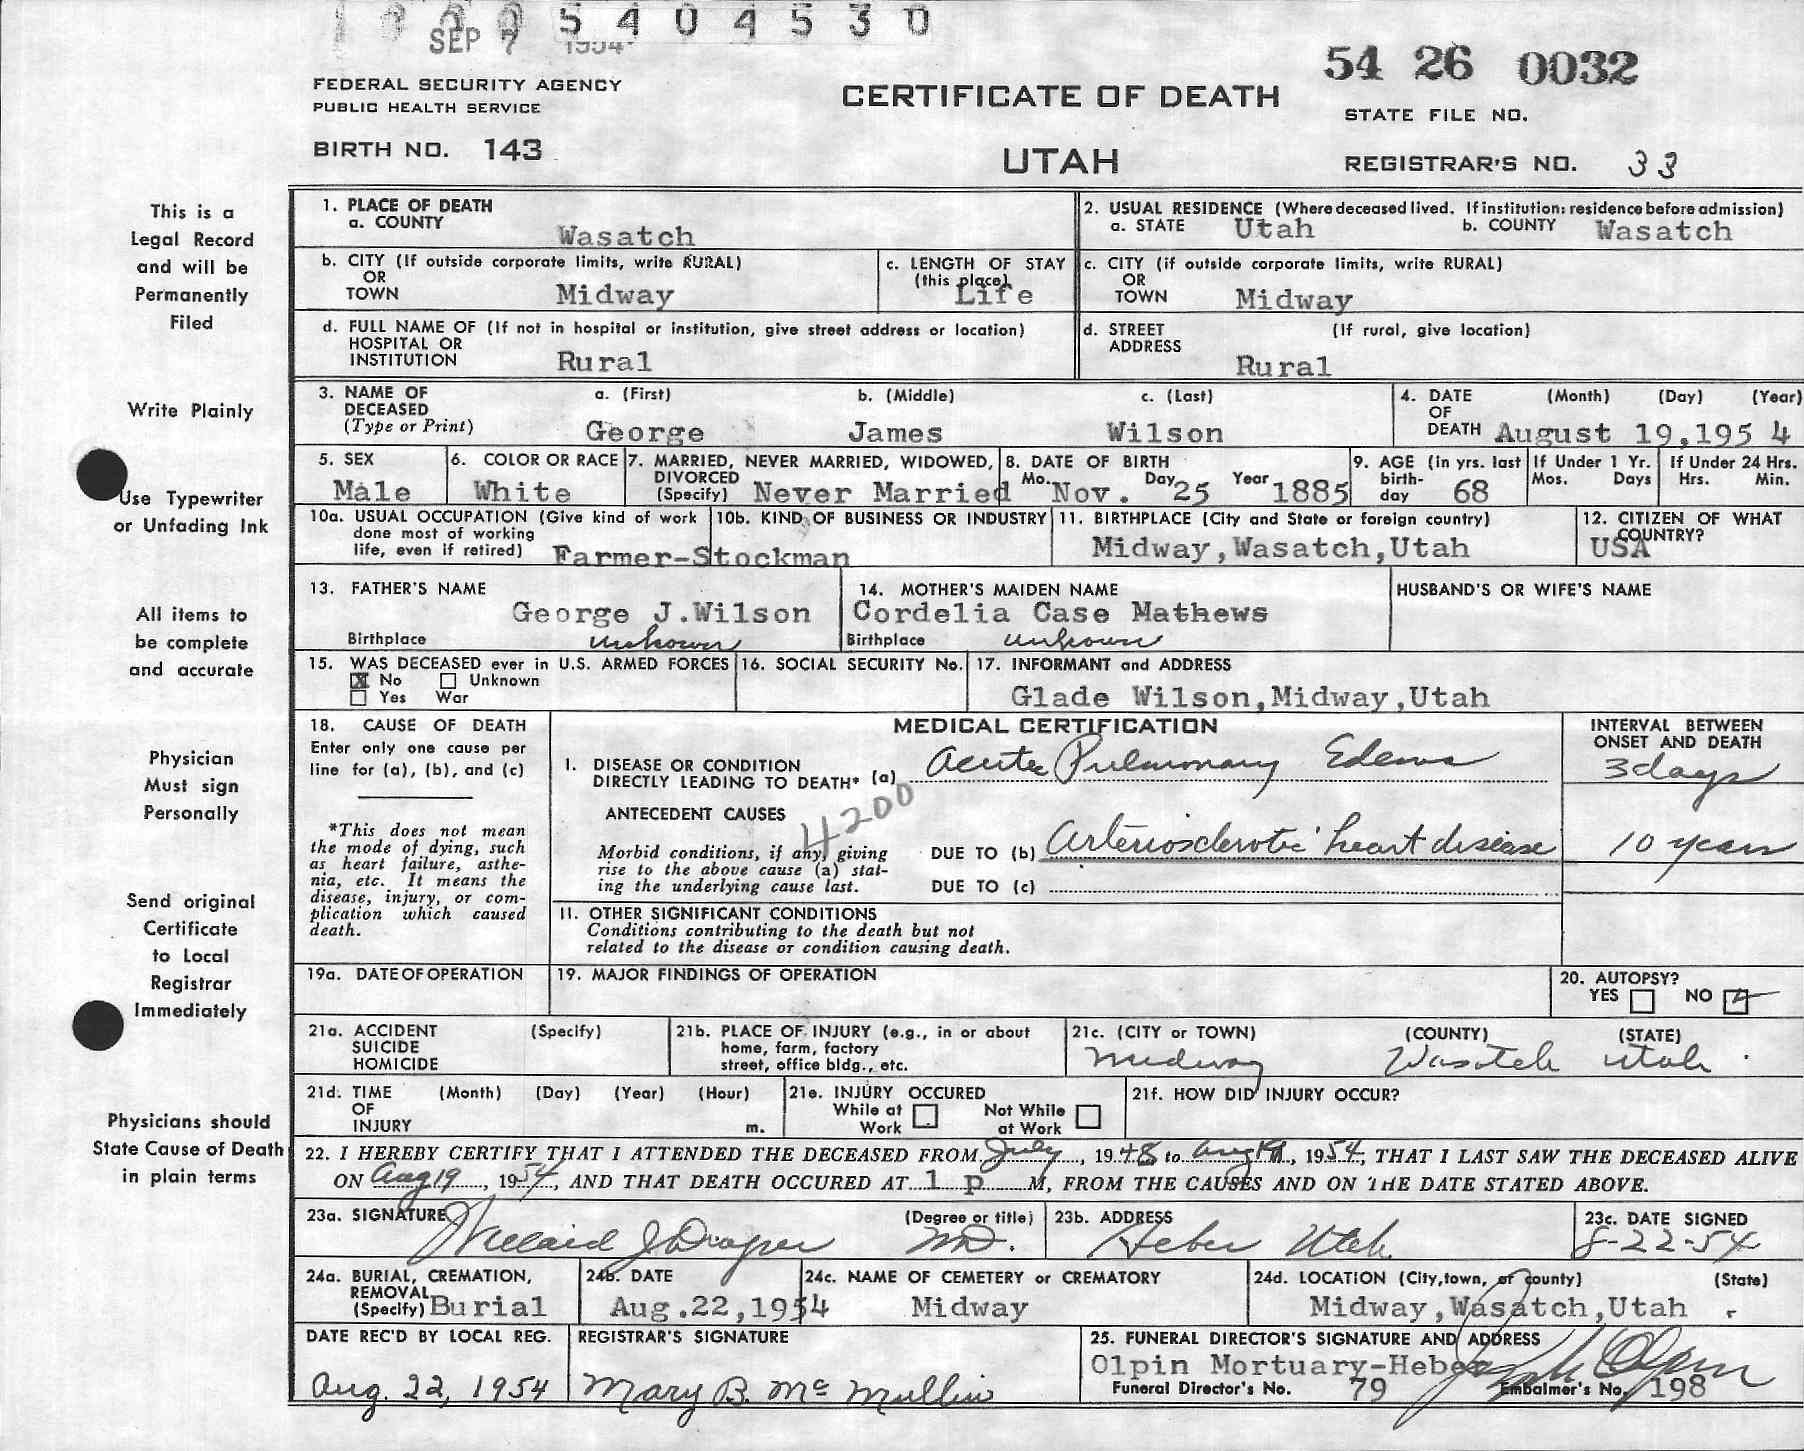 5 4 0 4 5 3 0
SEP 7 1954
54 26 0032
FEDERAL SECURITY AGENCY
PUBLIC HEALTH SERVICE
CERTIFICATE OF DEATH
STATE FILE NO.
BIRTH NO. 143
UTAH
REGISTRAR'S NO. 33
This is a
Legal Record
and will be
Permanently
Filed
Write Plainly
Use Typewriter
or Unfading Ink
All items to
be complete
and accurate
Physician
Must sign
Personally
Send original
Certificate
to Local
Registrar
Immediately
Physicians should
State Cause of Death
in plain terms
1. PLACE OF DEATH
a. COUNTY Wasatch
2. USUAL RESIDENCE (Where deceased lived. If institution: residence before admission)
a. STATE Utah b. COUNTY Wasatch
b. CITY (If outside corporate limits, write RURAL)
OR
TOWN Midway
c. LENGTH OF STAY
(this place)
Life
c. CITY (if outside corporate limits, write RURAL)
OR
TOWN Midway
d. FULL NAME OF (If not in hospital or institution, give street address or location)
HOSPITAL OR
INSTITUTION Rural
d. STREET (If rural, give location)
ADDRESS
Rural
3. NAME OF a. (First) b. (Middle) c. (Last)
DECEASED
(Type or Print) George James Wilson
4. DATE (Month) (Day) (Year)
OF
DEATH August 19,195 4
5. SEX
Male
6. COLOR OR RACE
White
7. MARRIED, NEVER MARRIED, WIDOWED,
DIVORCED
(Specify) Never Married
8. DATE OF BIRTH
Mo. Nov. Day 25 Year 1885
9. AGE (in yrs. last
birth-
day 68
If Under 1 Yr.
Mos. Days
If Under 24 Hrs.
Hrs. Min.
10a. USUAL OCCUPATION (Give kind of work
done most of working
life, even if retired) Farmer-Stockman
10b. KIND OF BUSINESS OR INDUSTRY
11. BIRTHPLACE (City and State or foreign country)
Midway,Wasatch,Utah
12. CITIZEN OF WHAT
COUNTRY?
USA
13. FATHER'S NAME
George J.Wilson
Birthplace unkown
14. MOTHER'S MAIDEN NAME
Cordelia Case Mathews
Birthplace unkown
HUSBAND'S OR WIFE'S NAME
15. WAS DECEASED ever in U.S. ARMED FORCES
X No Unknown
Yes War
16. SOCIAL SECURITY No.
17. INFORMANT and ADDRESS
Glade Wilson,Midway,Utah
18. CAUSE OF DEATH
Enter only one cause per
line for (a), (b), and (c)
*This does not mean
the mode of dying, such
as heart failure, asthe-
nia, etc. It means the
disease, injury, or com-
plication which caused
death.
MEDICAL CERTIFICATION
INTERVAL BETWEEN
ONSET AND DEATH
I. DISEASE OR CONDITION
DIRECTLY LEADING TO DEATH* (a) Acute Pulmonary Edema 3 days
ANTECEDENT CAUSES
4200
Morbid conditions, if any, giving
rise to the above cause (a) stat-
ing the underlying cause last.
DUE TO (b) Arteriosclerotic heart disease 10 years
DUE TO (c)
II. OTHER SIGNIFICANT CONDITIONS
Conditions contributing to the death but not
related to the disease or condition causing death.
19a. DATE OF OPERATION
19. MAJOR FINDINGS OF OPERATION
20. AUTOPSY?
YES NO
21a. ACCIDENT (Specify)
SUICIDE
HOMICIDE
21b. PLACE OF INJURY (e.g., in or about
home, farm, factory
street, office bldg., etc.
21c. (CITY or TOWN) (COUNTY) (STATE)
Midway Wasatch Utah
21d. TIME (Month) (Day) (Year) (Hour)
OF
INJURY m.
21e. INJURY OCCURED
While at Not While
Work at Work
21f. HOW DID INJURY OCCUR?
22. I HEREBY CERTIFY THAT I ATTENDED THE DECEASED FROM July, 1948 to Aug 19, 1954, THAT I LAST SAW THE DECEASED ALIVE
ON Aug 19, 1954, AND THAT DEATH OCCURED AT 1 p M, FROM THE CAUSES AND ON THE DATE STATED ABOVE.
23a. SIGNATURE (Degree or title)
Willard J Draper MD.
23b. ADDRESS
Heber Utah
23c. DATE SIGNED
8-22-54
24a. BURIAL, CREMATION,
REMOVAL
(Specify) Burial
24b. DATE
Aug.22,1954
24c. NAME OF CEMETERY or CREMATORY
Midway
24d. LOCATION (City, town, or county) (State)
Midway,Wasatch,Utah
DATE REC'D BY LOCAL REG.
Aug. 22, 1954
REGISTRAR'S SIGNATURE
Mary B. McMullin
25. FUNERAL DIRECTOR'S SIGNATURE AND ADDRESS
Olpin Mortuary-Heber
Funeral Director's No. 79 Embalmer's No. 198